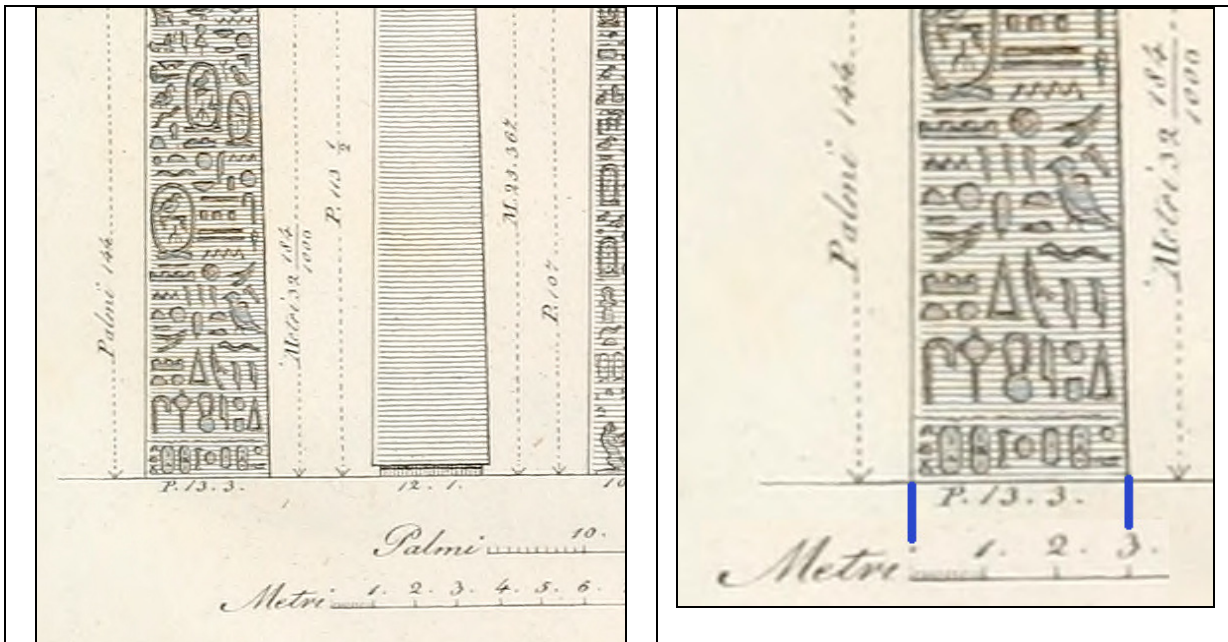 Palmi 144.
Metri 32 184/1000
P. 113 1/2
M. 23. 367.
P. 107
P. 13. 3.
12. 1.
10
Palmi 10.
Metri 1. 2. 3. 4. 5. 6.
Palmi 144.
Metri 32 184/1000
P. 13. 3.
Metri 1. 2. 3.